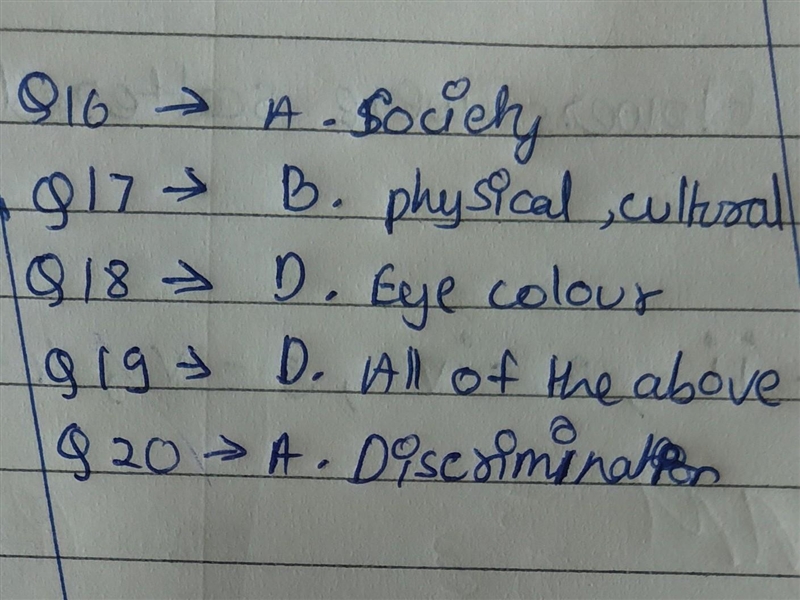 Q16 → A. Society
Q17 → B. physical, cultural
Q18 → D. Eye colour
Q19 → D. All of the above
Q20 → A. Discrimination